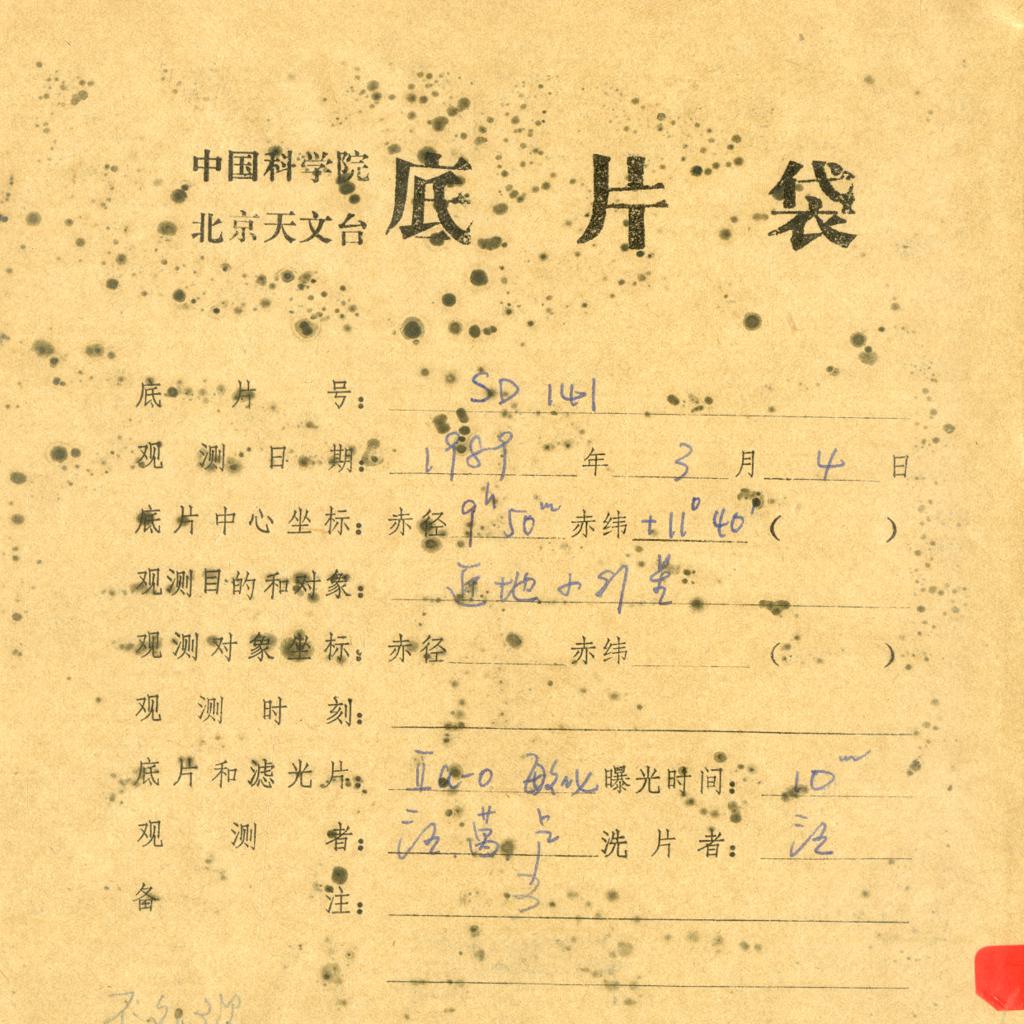 中国科学院
北京天文台
底片袋
底片号：SD 141
观测日期：1989年3月4日
底片中心坐标：赤径9h 50m 赤纬+11° 40′（ ）
观测目的和对象：近地小行星
观测对象坐标：赤径 赤纬 （ ）
观测时刻：
底片和滤光片：IIa-O 敏化 曝光时间：10m
观测者：汪 洗片者：汪
备注：